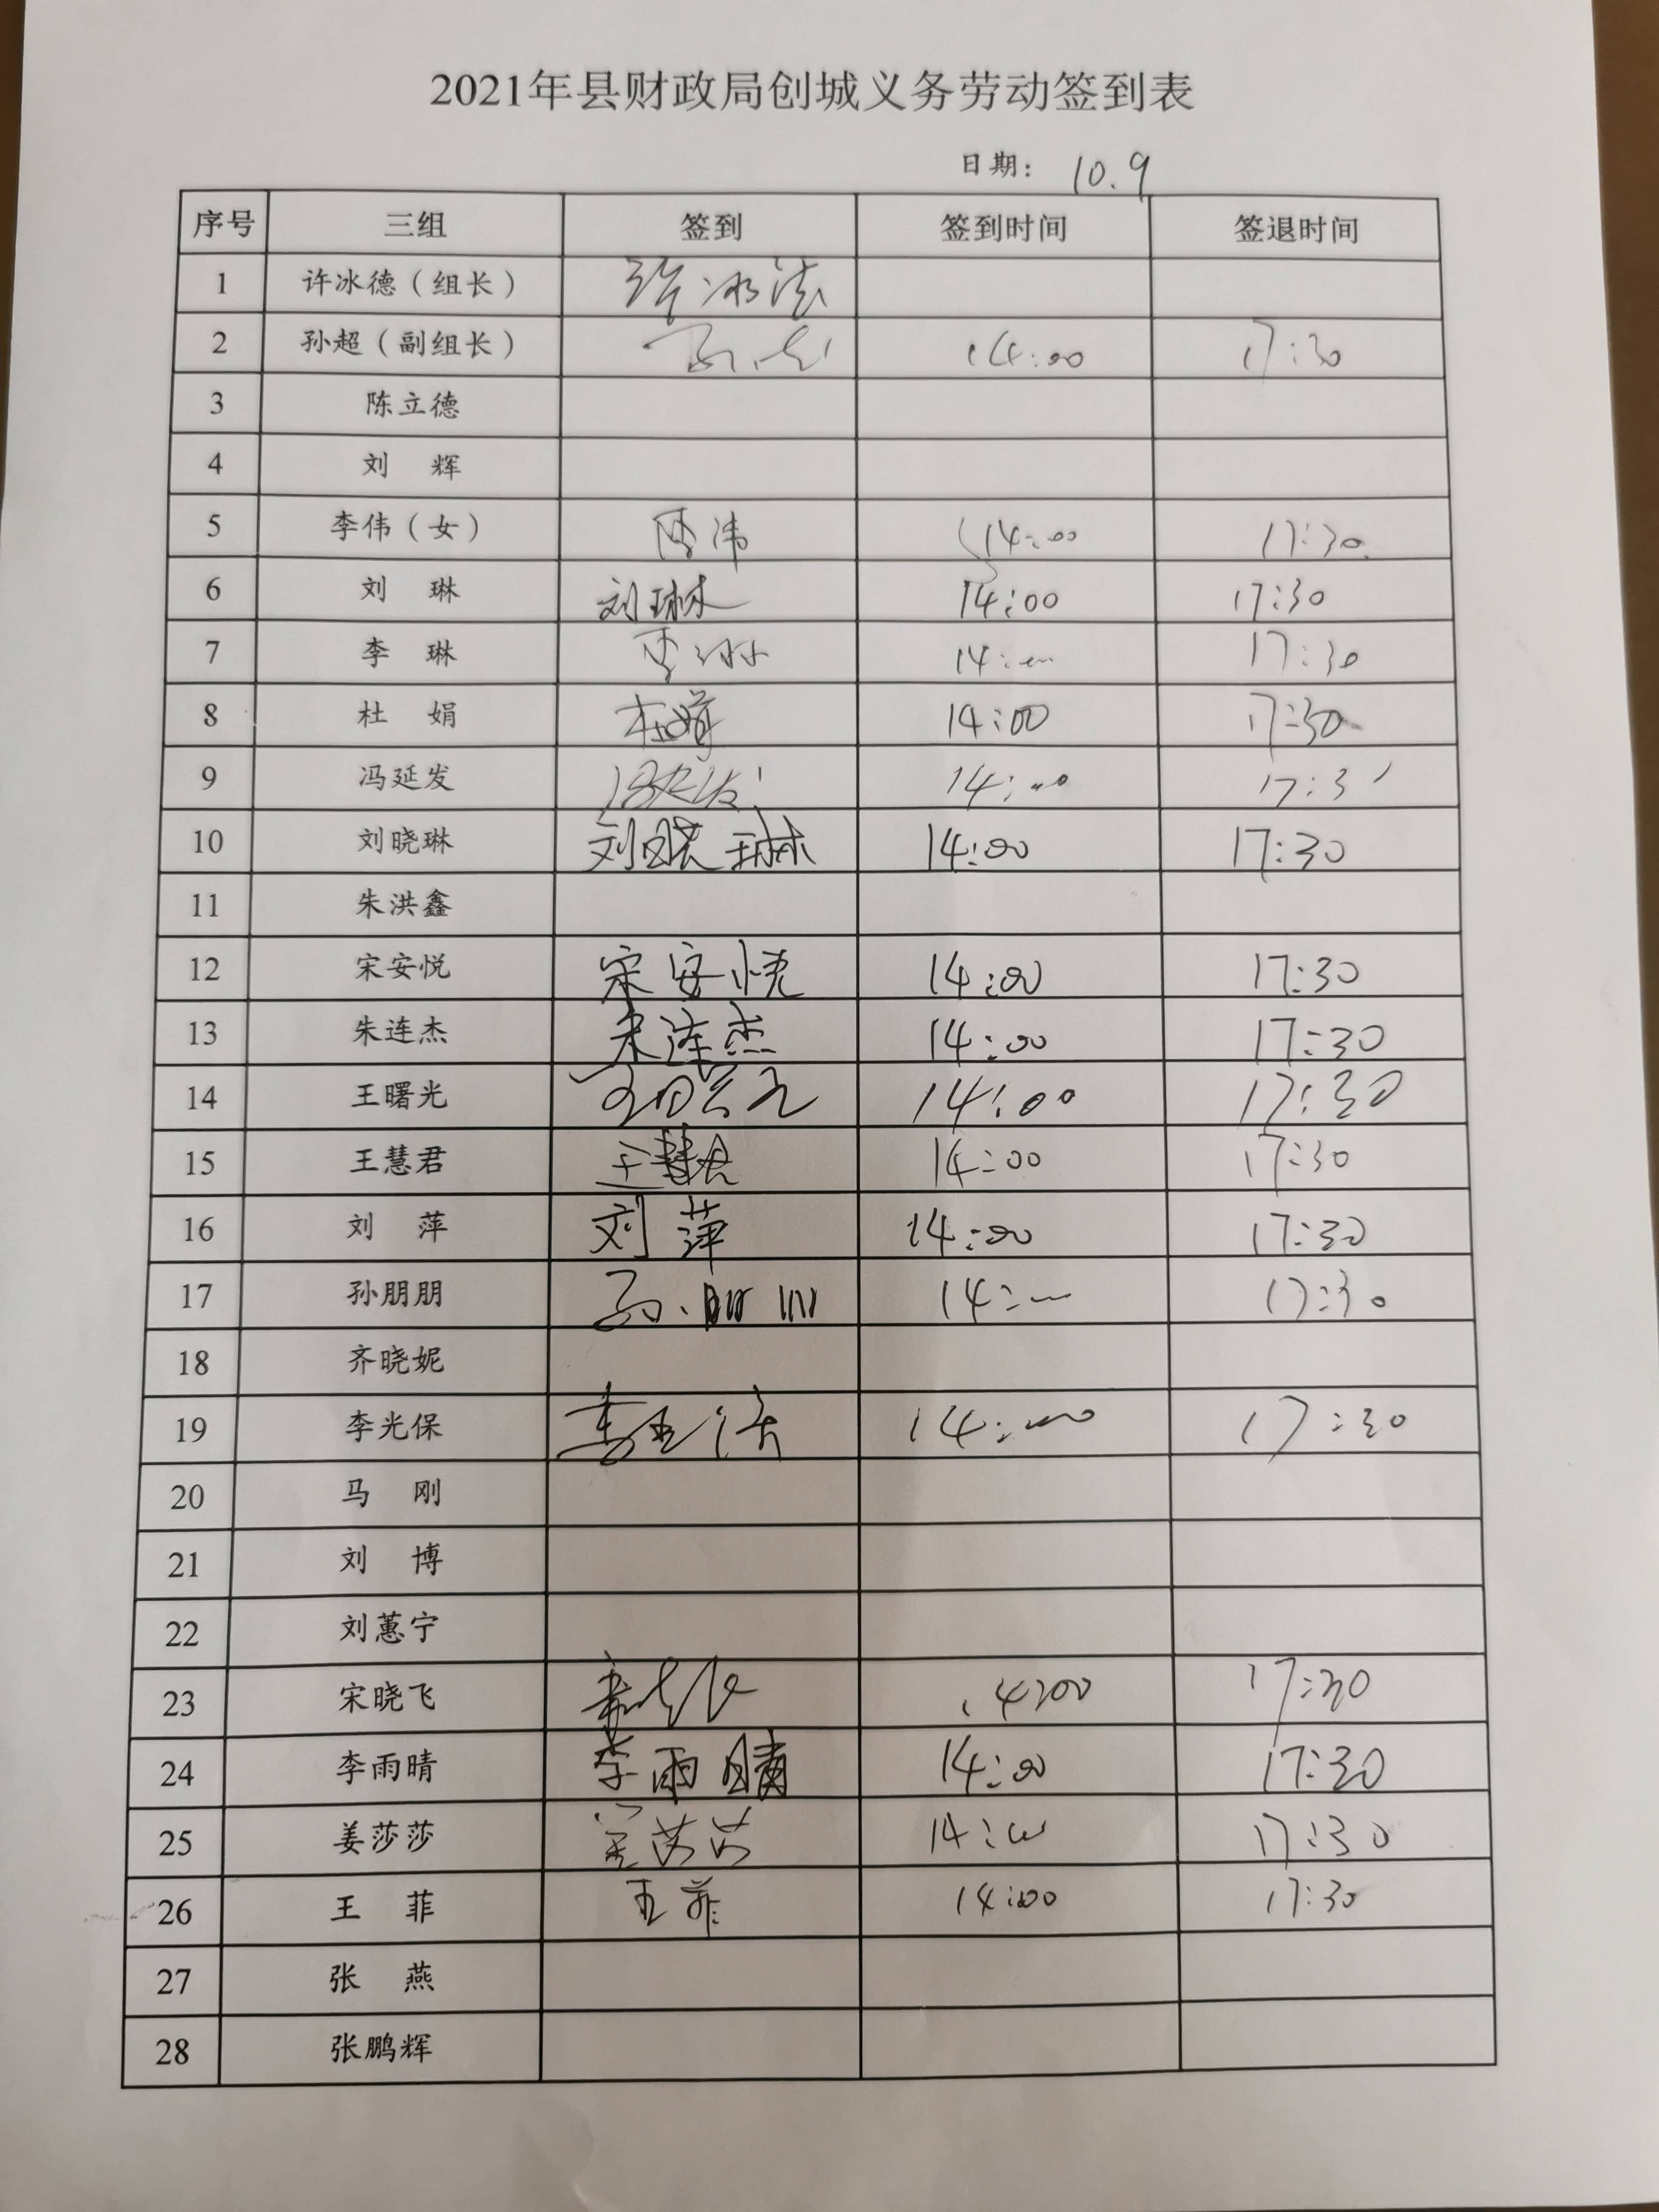 2021年县财政局创城义务劳动签到表
日期: 10.9
序号 三组 签到 签到时间 签退时间
1 许冰德（组长） 许冰德
2 孙超（副组长） 孙超 14:00 17:30
3 陈立德
4 刘 辉
5 李伟（女） 李伟 14:00 17:30
6 刘 琳 刘琳 14:00 17:30
7 李 琳 李琳 14:00 17:30
8 杜 娟 杜娟 14:00 17:30
9 冯延发 冯延发 14:00 17:3
10 刘晓琳 刘晓琳 14:00 17:30
11 朱洪鑫
12 宋安悦 宋安悦 14:00 17:30
13 朱连杰 朱连杰 14:00 17:30
14 王曙光 王曙光 14:00 17:30
15 王慧君 王慧君 14:00 17:30
16 刘 萍 刘萍 14:00 17:30
17 孙朋朋 孙朋朋 14:00 17:30
18 齐晓妮
19 李光保 李光保 14:00 17:30
20 马 刚
21 刘 博
22 刘蕙宁
23 宋晓飞 14:00 17:30
24 李雨晴 李雨晴 14:00 17:30
25 姜莎莎 姜莎莎 14:00 17:30
26 王 菲 王菲 14:00 17:30
27 张 燕
28 张鹏辉